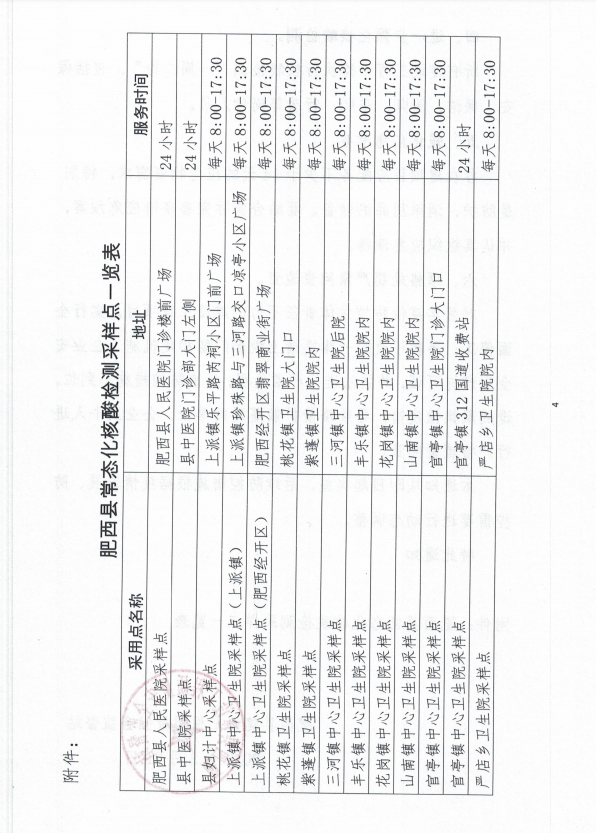 附件：
肥西县常态化核酸检测采样点一览表
采用点名称 地址 服务时间
肥西县人民医院采样点 肥西县人民医院门诊楼前广场 24 小时
县中医院采样点 县中医院门诊部大门左侧 24 小时
县妇计中心采样点 上派镇乐平路芮祠小区门前广场 每天 8:00-17:30
上派镇中心卫生院采样点（上派镇） 上派镇珍珠路与三河路交口凉亭小区广场 每天 8:00-17:30
上派镇中心卫生院采样点（肥西经开区） 肥西经开区翡翠商业街广场 每天 8:00-17:30
桃花镇卫生院采样点 桃花镇卫生院大门口 每天 8:00-17:30
紫蓬镇卫生院采样点 紫蓬镇卫生院院内 每天 8:00-17:30
三河镇中心卫生院采样点 三河镇中心卫生院后院 每天 8:00-17:30
丰乐镇中心卫生院采样点 丰乐镇中心卫生院院内 每天 8:00-17:30
花岗镇中心卫生院采样点 花岗镇中心卫生院院内 每天 8:00-17:30
山南镇中心卫生院采样点 山南镇中心卫生院院内 每天 8:00-17:30
官亭镇中心卫生院采样点 官亭镇中心卫生院门诊大门口 每天 8:00-17:30
官亭镇中心卫生院采样点 官亭镇 312 国道收费站 24 小时
严店乡卫生院采样点 严店乡卫生院院内 每天 8:00-17:30
4